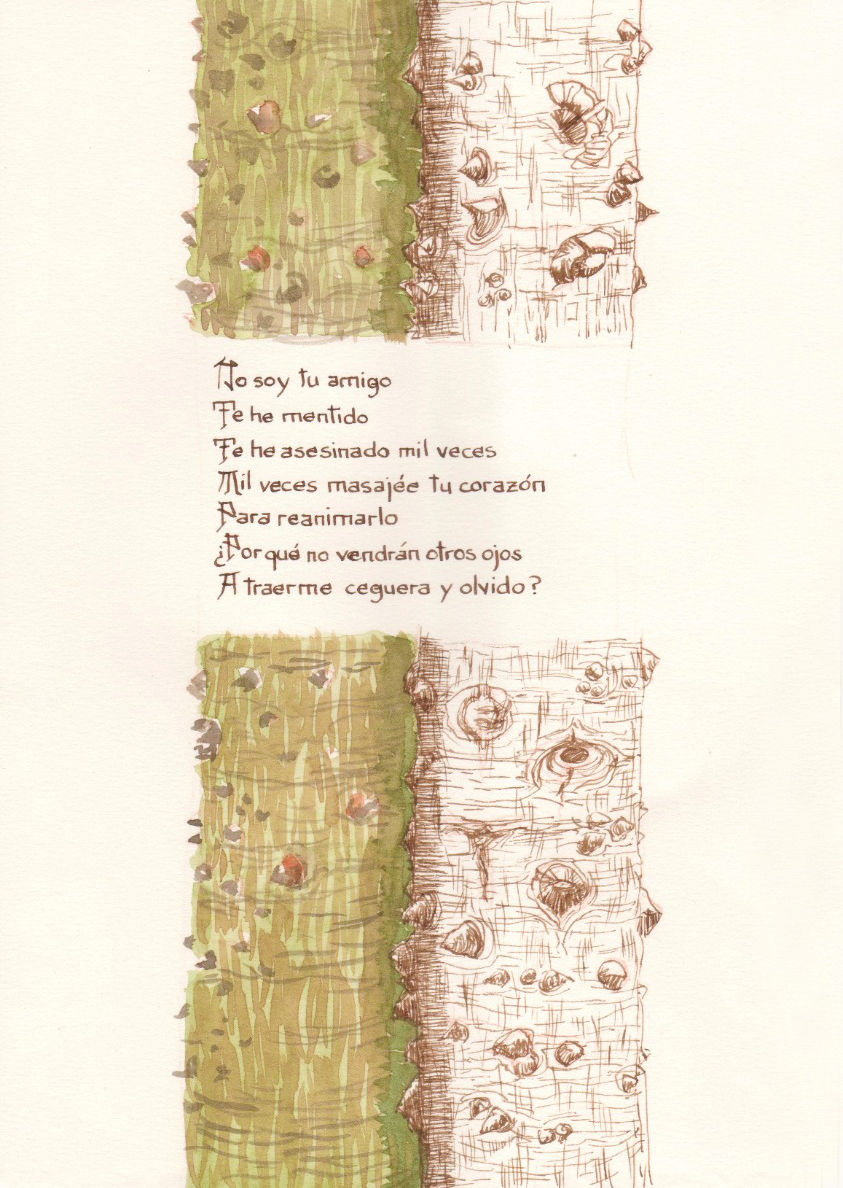 No soy tu amigo
Te he mentido
Te he asesinado mil veces
Mil veces masajée tu corazón
Para reanimarlo
¿Por qué no vendrán otros ojos
A traerme ceguera y olvido?